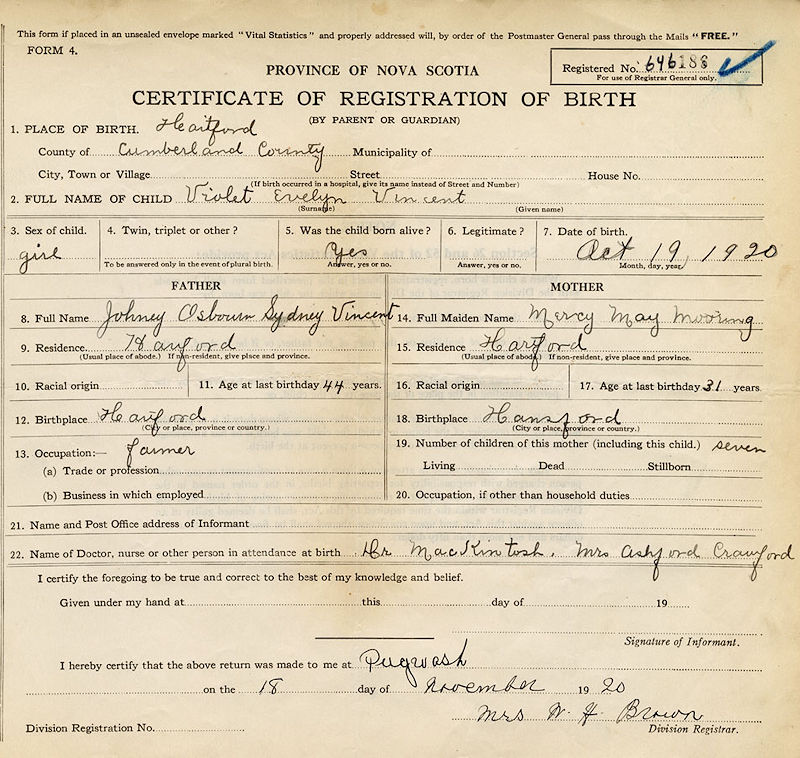 This form if placed in an unsealed envelope marked "Vital Statistics" and properly addressed will, by order of the Postmaster General pass through the Mails "FREE."
FORM 4.
Registered No. 646188
For use of Registrar General only.
PROVINCE OF NOVA SCOTIA
CERTIFICATE OF REGISTRATION OF BIRTH
(BY PARENT OR GUARDIAN)
1. PLACE OF BIRTH.
County of Cumberland County Municipality of
City, Town or Village Street House No.
(If birth occurred in a hospital, give its name instead of Street and Number)
2. FULL NAME OF CHILD Violet Evelyn Vincent
(Surname) (Given name)
3. Sex of child. 4. Twin, triplet or other ? 5. Was the child born alive ? 6. Legitimate ? 7. Date of birth.
girl Yes Oct 19, 1920
To be answered only in the event of plural birth. Answer, yes or no. Answer, yes or no. Month, day, year
FATHER MOTHER
8. Full Name Johney Osbourn Sydney Vincent 14. Full Maiden Name Mercy May Mooring
9. Residence. 15. Residence
(Usual place of abode.) If non-resident, give place and province. (Usual place of abode.) If non-resident, give place and province.
10. Racial origin 11. Age at last birthday 44 years. 16. Racial origin 17. Age at last birthday 31 years.
12. Birthplace 18. Birthplace Hansford
(City or place, province or country.) (City or place, province or country.)
13. Occupation:— farmer 19. Number of children of this mother (including this child.) seven
(a) Trade or profession Living Dead Stillborn
(b) Business in which employed 20. Occupation, if other than household duties
21. Name and Post Office address of Informant
22. Name of Doctor, nurse or other person in attendance at birth Dr MacKintosh. Mrs Ashford Crawford
I certify the foregoing to be true and correct to the best of my knowledge and belief.
Given under my hand at this day of 19
Signature of Informant.
I hereby certify that the above return was made to me at Pugwash
on the 18 day of November 1920
Mrs W. H. Brown
Division Registration No. Division Registrar.